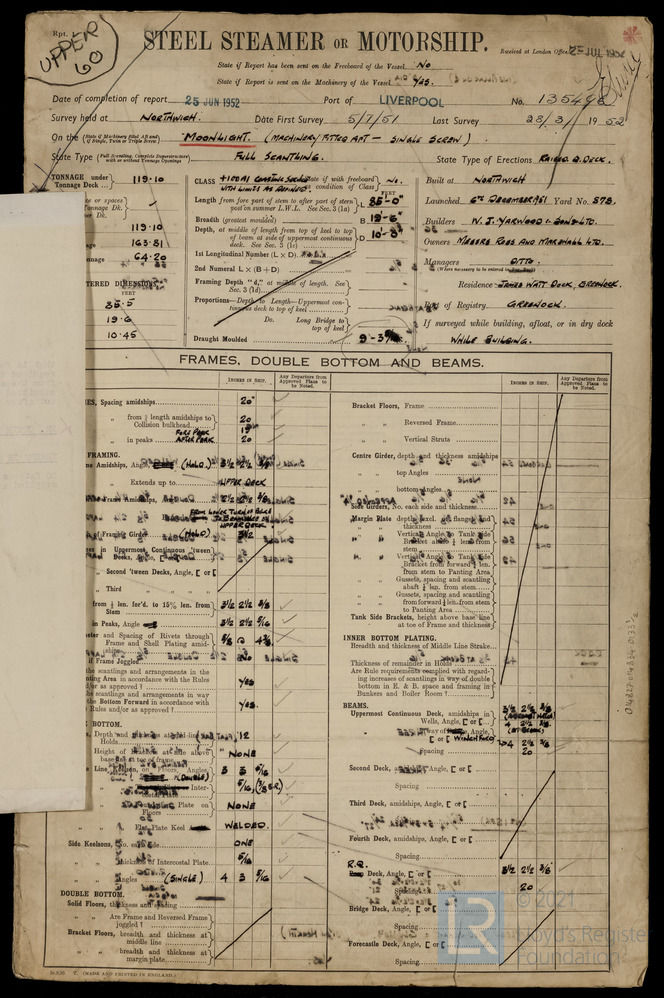 Rpt.
UPPER
60
STEEL STEAMER OR MOTORSHIP.
Received at London Office 2- JUL 1952
State if Report has been sent on the Freeboard of the Vessel No
State if Report is sent on the Machinery of the Vessel Yes.
Date of completion of report 25 JUN 1952 Port of LIVERPOOL No. 135498
Survey held at NORTHWICH. Date First Survey 5/7/51 Last Survey 28/3/1952
On the (State if Machinery fitted Aft and if Single, Twin or Triple Screw) "MOONLIGHT. (MACHINERY FITTED AFT - SINGLE SCREW)
State Type (Full Scantling, Complete Superstructure with or without Tonnage Openings) FULL SCANTLING. State Type of Erections RAISED Q. DECK.
TONNAGE under Tonnage Deck ... 119.10
119.10
163.81
64.20
FEET
85.5
19.6
10.45
CLASS +100A1 state if with freeboard condition of Class No.
WITH LIMITS AS DEFINED
FEET
Length from fore part of stem to after part of stern post on summer L.W.L. See Sec. 3 (1a) L 85'-0"
Breadth (greatest moulded) B 19'-6"
Depth, at middle of length from top of keel to top of beam at side of uppermost continuous deck. See Sec. 3 (1c) D 10'-8"
1st Longitudinal Number (L × D)
2nd Numeral L × (B + D)
Framing Depth "d," at middle of length. See Sec. 3 (1d)
Proportions—Depth to Length—Uppermost continuous deck to top of keel
Do. Long Bridge to top of keel
Draught Moulded
Built at NORTHWICH
Launched 6TH DECEMBER 1951 Yard No. 878.
Builders W. J. YARWOOD & SONS LTD.
Owners MESSRS ROSS AND MARSHALL LTD.
Managers DITTO.
(Where necessary to be entered in Reg. Book)
Residence JAMES WATT DOCK, GREENOCK.
Port of Registry GREENOCK.
If surveyed while building, afloat, or in dry dock
WHILE BUILDING.
FRAMES, DOUBLE BOTTOM AND BEAMS.
INCHES IN SHIP.
Any Departure from Approved Plans to be Noted.
INCHES IN SHIP.
Any Departure from Approved Plans to be Noted.
Spacing amidships 20"
from ⅕ length amidships to Collision bulkhead 20
in peaks FORE PEAK 19
AFTER PEAK 20
FRAMING.
Amidships, Angle (HOLD.) 3½ 2½ 3/8
Extends up to UPPER DECK
Frame Amidships, Angle
FROM LOWER TURN OF BILGE
UPPER DECK
of Framing Girder (HOLD) 3½
in Uppermost Continuous 'tween Decks, Angle, [ or [
Second 'tween Decks, Angle, [ or [
Third
from ⅕ len. for'd. to 15% len. from Stem 3½ 2½ 3/8
in Peaks, Angle 3½ 2½ 5/16
and Spacing of Rivets through Frame and Shell Plating
if Frame Joggled No
the scantlings and arrangements in the Panting area in accordance with the Rules and/or as approved? Yes.
the scantlings and arrangements in way of the Bottom Forward in accordance with Rules and/or as approved? Yes
BOTTOM.
Depth and thickness at mid-line in Holds 12
Height of Brackets at side above base line at toe of frame NONE
on Floors, Angles (DOUBLE) 3 3 5/16
Inter-
Plate on Floors NONE
Flat Plate Keel WELDED.
Side Keelsons, No. each side ONE
thickness of Intercostal Plate 5/16
Angles (SINGLE) 4 3 5/16
DOUBLE BOTTOM.
Solid Floors, thickness and spacing
Are Frame and Reversed Frame joggled?
Bracket Floors, breadth and thickness at middle line
breadth and thickness at margin plate
Bracket Floors, Frame
Reversed Frame
Vertical Struts
Centre Girder, depth and thickness amidships
top Angles
bottom Angles
Side Girders, No. each side and thickness
Margin Plate depth (excl. of flange) and thickness
Vertical Angle to Tank Side Bracket abaft ¼ len. from stem
Vertical Angle to Tank side Bracket from forward ¼ len. from stem to Panting Area
Gussets, spacing and scantling abaft ¼ len. from stem
Gussets, spacing and scantling from forward ¼ len. from stem to Panting Area
Tank Side Brackets, height above base line at toe of Frame and thickness
INNER BOTTOM PLATING.
Breadth and thickness of Middle Line Strake
Thickness of remainder in Holds
Are Rule requirements complied with regarding increases of scantlings in way of double bottom in E. & B. space and framing in Bunkers and Boiler Room?
BEAMS.
Uppermost Continuous Deck, amidships in Wells, Angle, [ or [ 3½ 2½ 3/8
in way of [ or [
4 2½ 3/8
Spacing 20
Second Deck, Angle, [ or [
Spacing
Third Deck, amidships, Angle, [ or [
Spacing
Fourth Deck, amidships, Angle, [ or [
Spacing
R.Q. Deck, Angle, [ or [ 3½ 2½ 3/8
Spacing 20
Bridge Deck, Angle, [ or [
Spacing
Forecastle Deck, Angle, [ or [
Spacing
(MADE AND PRINTED IN ENGLAND.)
LR
© 2021
Lloyd's Register
Foundation